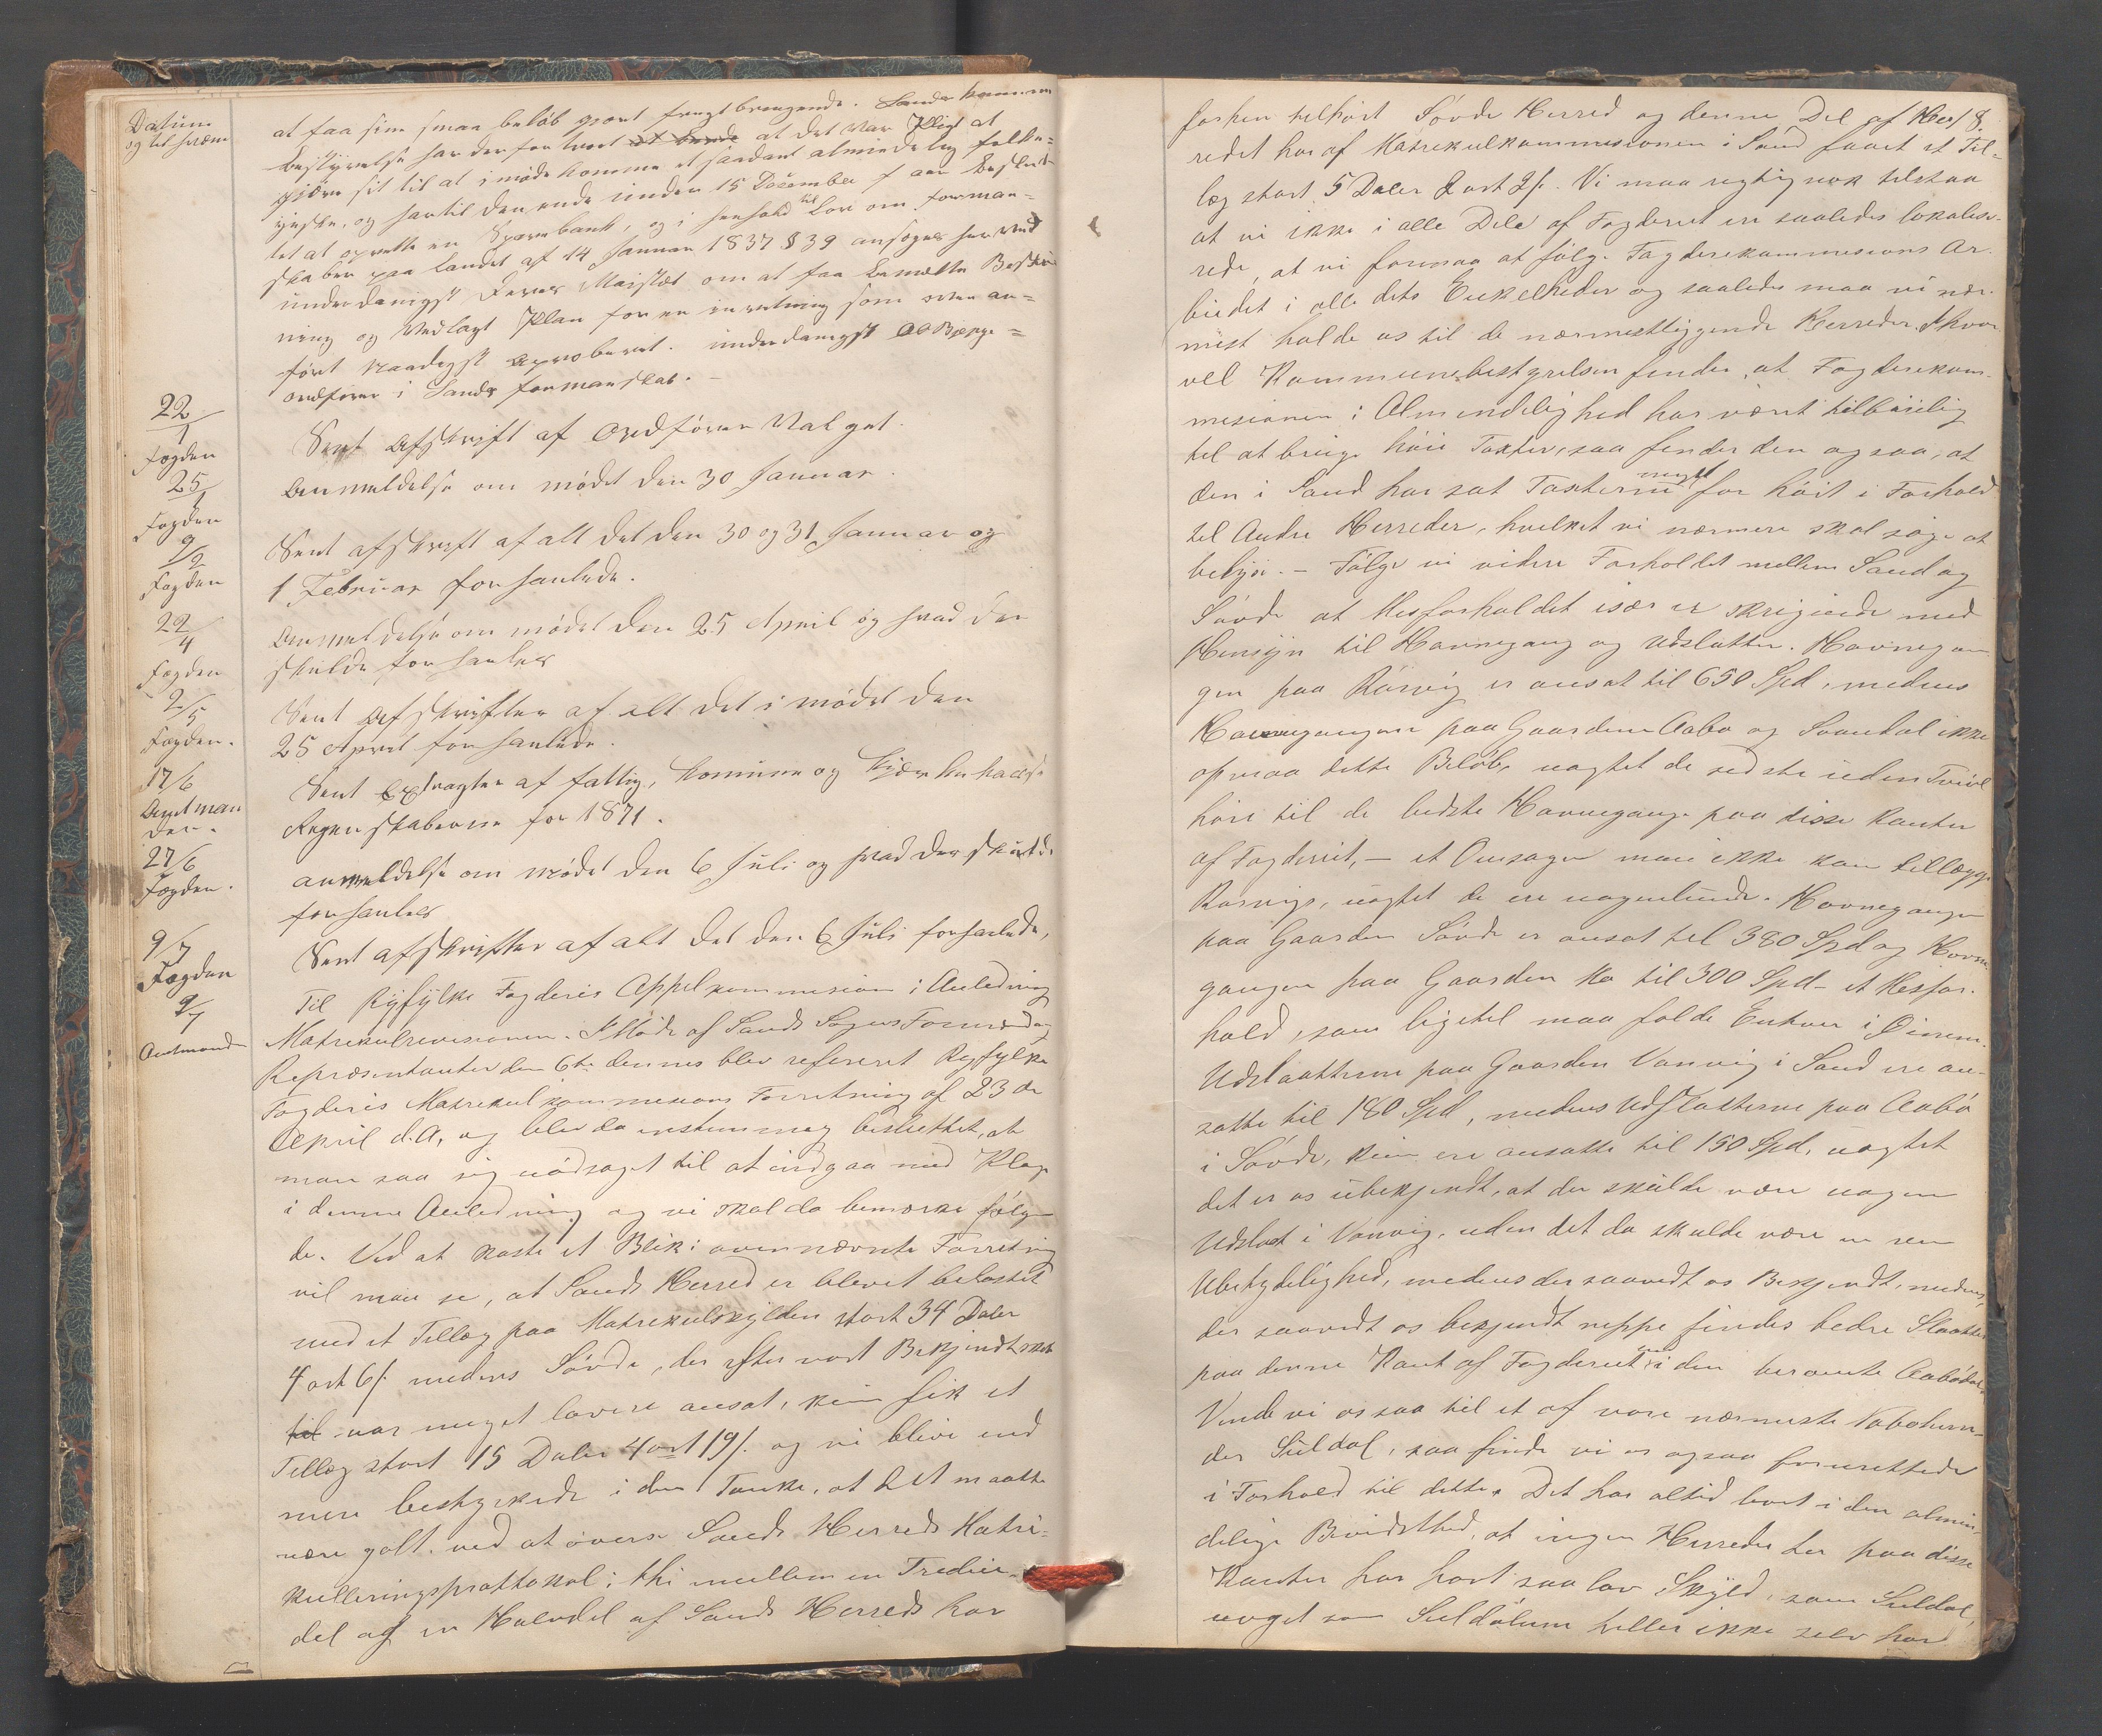 Datum
og til hvem
at faa sine smaa beløb gjort frugtbringende. Sands kommune
bestyrelse har derfor troet at burde at det var Pligt at
gjøre sit til at imødekomme et saadant almindelig folke=
ynske, og har til den ende under 15 December f aar besluttet
tet at oprette en Sparebank, og i henhold til Lov om forman=
skaber paa landet af 14 Januar 1837 § 39 ansøges herved
underdanigst Deres Maistæt om at faa bemælte Beslut
ning og Vedlagt Plan for en inretning som oven an=
ført naadigst aproberet. underdanigst
ordfører i Sands formanskab. –
22/1
Fogden
Sent Afskrift af Ordförer Valget.
25/1
Fogden
Anmeldelse om mødet den 30 Januar.
9/2
Fogden
Sent afskrift af alt det den 30 og 31 Januar og
1 Februar forhanlede.
22/4
Fogden
Anmeldelse om mødet den 25 April og hvad der
skulde forhanles
2/5
Fogden.
Sent Afskrifter af alt det i mødet den
25 April forhanlede.
17/6
Amtman
den.
Sent Extragter af fattig, Komune og
Regenskaberne for 1871.
27/6
Fogden.
anmeldelse om mødet den 6 Juli og hvad der skulde
forhanles
9/7
Fogden
Sent afskrifter af alt det den 6 Juli forhanlede,
9/7
Amtmand
Til Ryfylke Fogderis Appelkommision i Anledning
Matrekulrevisionen. I Møde af Sands Sogns Formænd og
Representanter den 6te dennes blev refereret Ryfylke
Fogderis Matrekulkommisions Forretning af 23de
April d.A, og blev da enstemmig besluttet, at
man saa sig nödsaget til at indgaa med Klage
i denne Anledning og vi skal da bemærke fölgen
de. Ved at kaste et Blik i ovennævnte Forretning
vil man se, at Sands Herred er blevet belastet
med et Tillæg paa Matrekulskylden stort 34 Daler
4 ort 6/. medens Sövde, der efter vort Bekjendtskab
til var meget lavere ansat, kun fik et
Tillæg stort 15 Daler 4 ort 19/. og vi blive end
mere bestyrkede i den Tanke, at det maatte
være galt. ved at överse Sands Herreds Matri=
kulleringsprottokol; thi mellem en Tredie=
del og en Halvdel af Sands Herred har
8.
forhen tilhört Sövde Herred og denne Del af Her
redet har af Matrekulkommisionen i Sand faaet et Til=
læg stort 5 Daler 2 ort 2/. Vi maa rigtignok tilstaa
at vi ikke i alle Dele af Fogderiet ere saaledes lokalise-
rede, at vi formaa at fölge Fogderikommisions Ar-
beidet i alle dets Enkelheder og saaledes maa vi nær-
mest holde os til de nærmestliggende Herreder. Ihvor
vel Kommunebestyrelsen finder, at Fogderikom-
misionen i Almindelighed har været tilböielig
til at bringe höie Taxter, saa finder den ogsaa, at
den i Sand har sat Taxterne meget for höit i Forhold
til Andre Herreder, hvilket vi nærmere skal söge at
belyse. – Fölge vi videre Forholdet mellem Sand og
Sövde at Misforholdet især er skrigende med
Hensyn til Havnegang og Udslatter. Havnegan
gen paa Rörvig er ansat til 650 Spd, medens
Havnegangene paa Gaardene Aabø og Svandal ikke
opnaa dette Beløb, uagtet de sidste uden Tvivl
höre til de bedste Havnegange paa disse Kanter
af Fogderiet, – et Omsagn man ikke kan tillægge
Rörvigs, uagtet de ere nogenlunde. Havnegangen
paa Gaarden Sövde er ansat til 380 Spd og Havne
gangen paa Gaarden Ro til 300 Spd – et Misfor-
hold, som ligetil maa falde Enhver i Öinene.
Udslaatterne paa Gaarden Vanvig i Sand ere an-
satte til 180 Spd, medens Udslatterne paa Aabö
i Sövde, kun ere ansatte til 150 Spd, uagtet
det er os ubekjendt, at der skulde være nogen
Udslat i Vanvig, uden det da skulde være en ren
Ubetydelighed, medens der saavidt os Bekjendt, medens,
der saavidt os bekjendt neppe findes bedre Slaatter
paa denne Kant af Fogderiet end i den berømte Aabödal.
Vende vi os saa til et af vore nærmeste Naboherre-
der Suldal, saa finde vi os ogsaa forurettede
i Forhold til dette. Det har altid levet i den almin-
delige Bevidsthed, at ingen Herreder her paa disse
Kanter har havt saa lav Skyld, som Suldal,
noget som Suldölerne heller ikke selv har